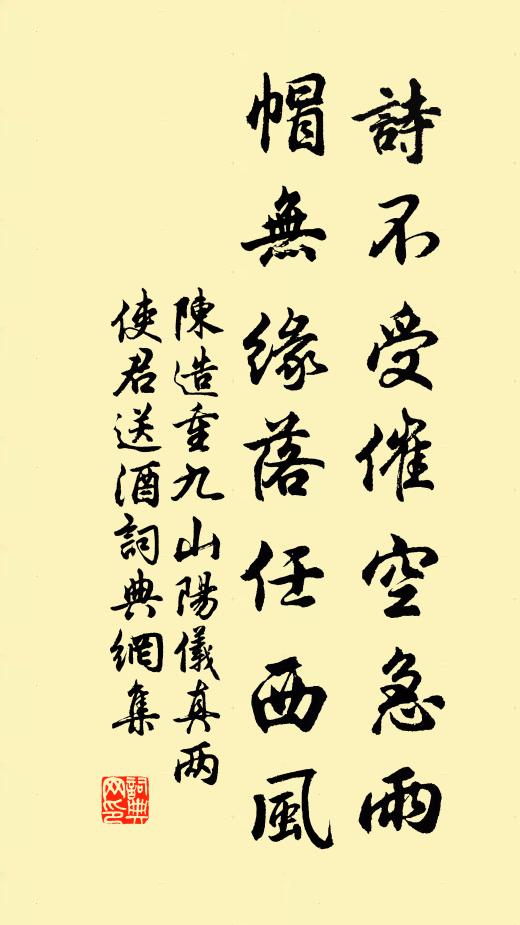 詩不受催空急雨
帽無緣落任西風
陳造重九山陽儀真兩
使君送酒詞典網集
詞典
网印